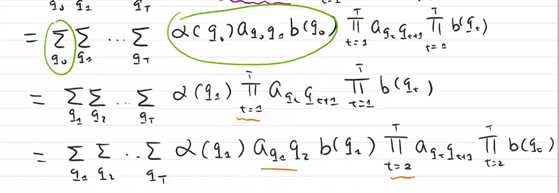 q₀ q₁ q_T
= Σ_{q₀} Σ_{q₁} ... Σ_{q_T} α(q₀) a_{q₀q₁} b(q₀) ∏_{t=1}^{T} a_{q_t q_{t+1}} ∏_{t=1}^{T} b(q_t)
= Σ_{q₁} Σ_{q₂} ... Σ_{q_T} α(q₁) ∏_{t=1}^{T} a_{q_t q_{t+1}} ∏_{t=1}^{T} b(q_t)
= Σ_{q₁} Σ_{q₂} ... Σ_{q_T} α(q₁) a_{q₁q₂} b(q₁) ∏_{t=2}^{T} a_{q_t q_{t+1}} ∏_{t=2}^{T} b(q_t)